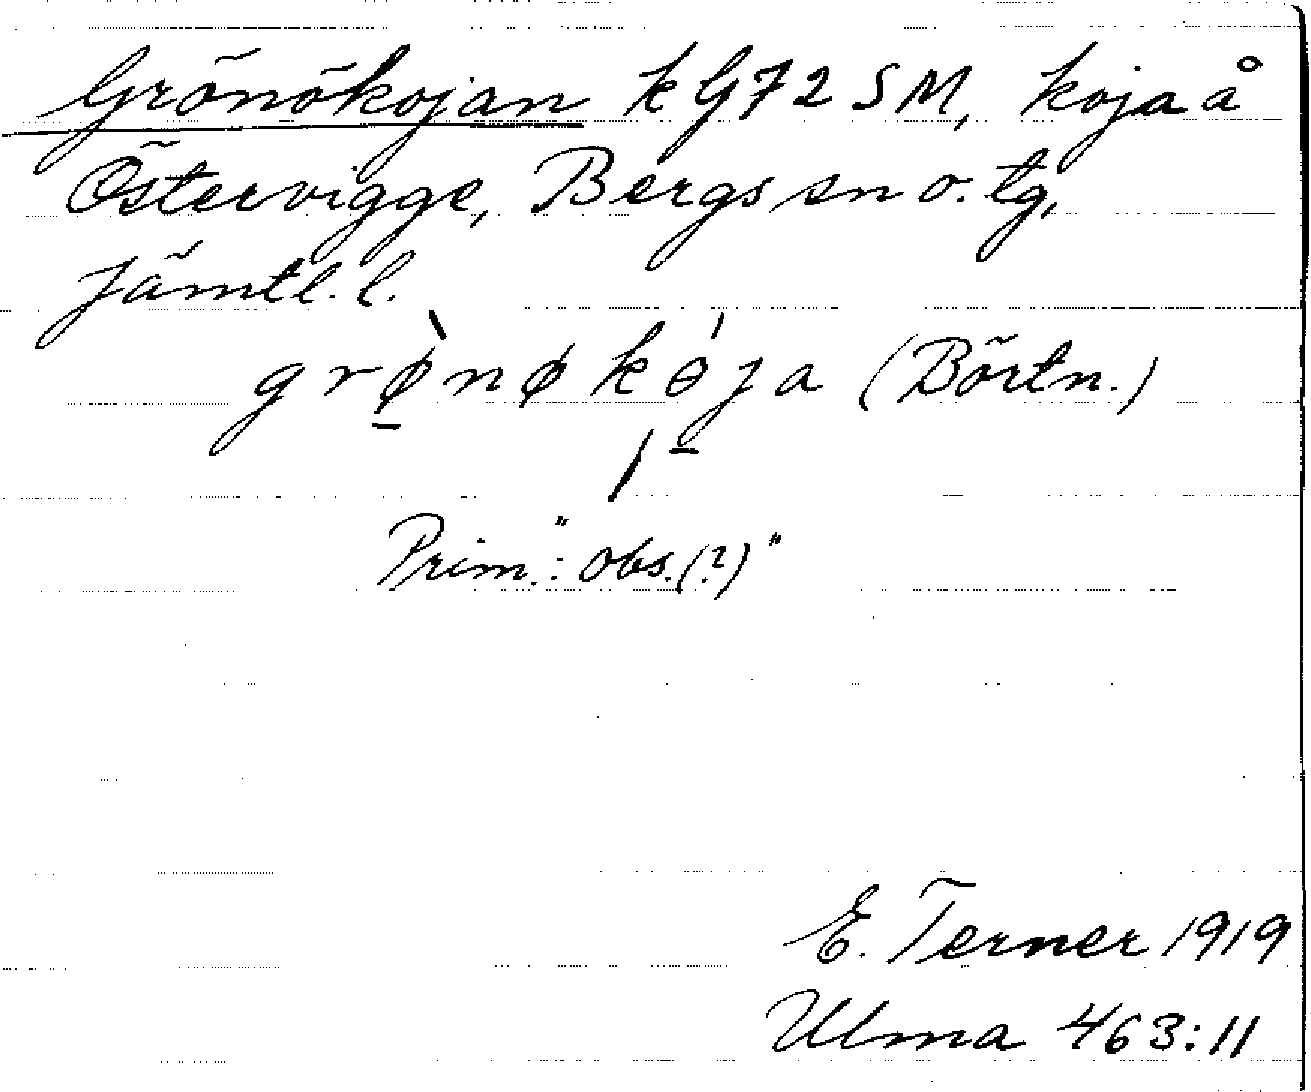 Grönökojan k G72 SM, koja å
Östervigge, Bergs sn o. tg,
Jämtl. l.
grø̱̀nøkɵ̱́ja (Börtn.)
Prim.: "obs.(?)"
E. Terner 1919
Ulma 463:11